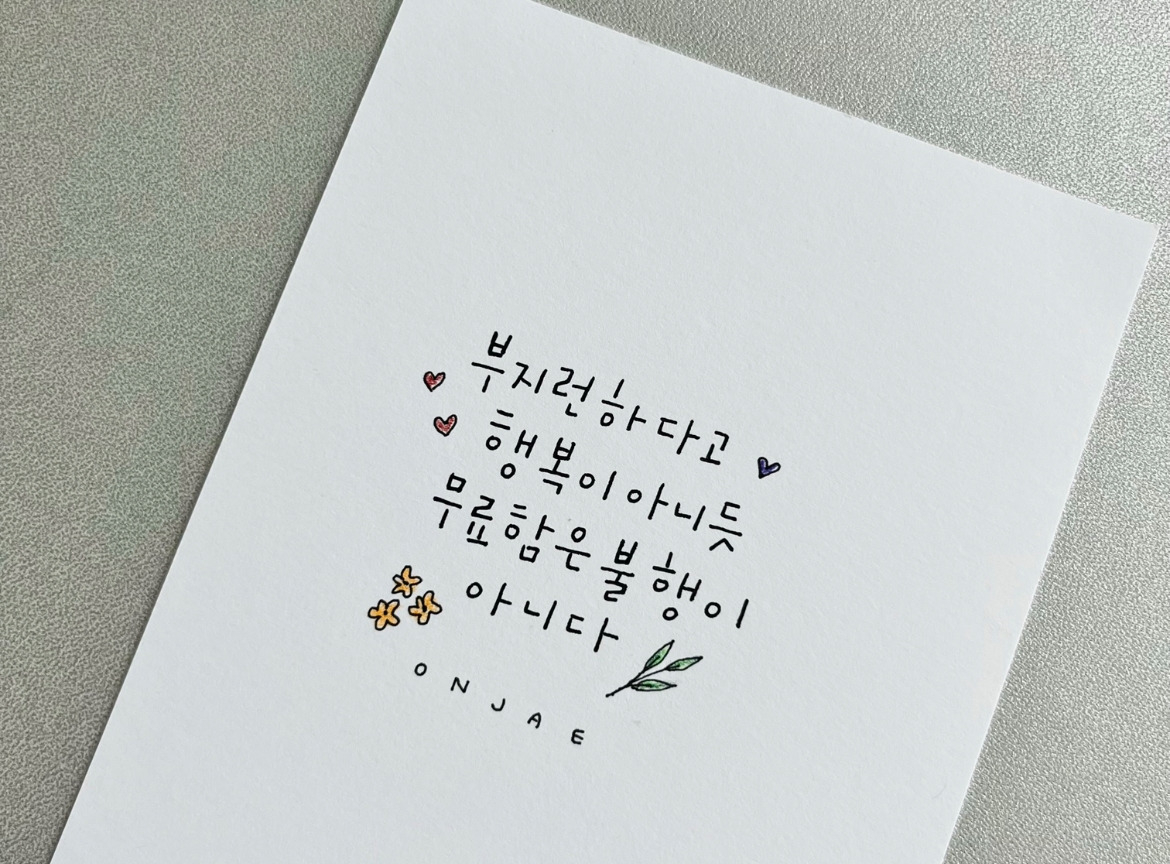 부지런하다고
행복이 아니듯
무료함은 불행이
아니다
ONJAE